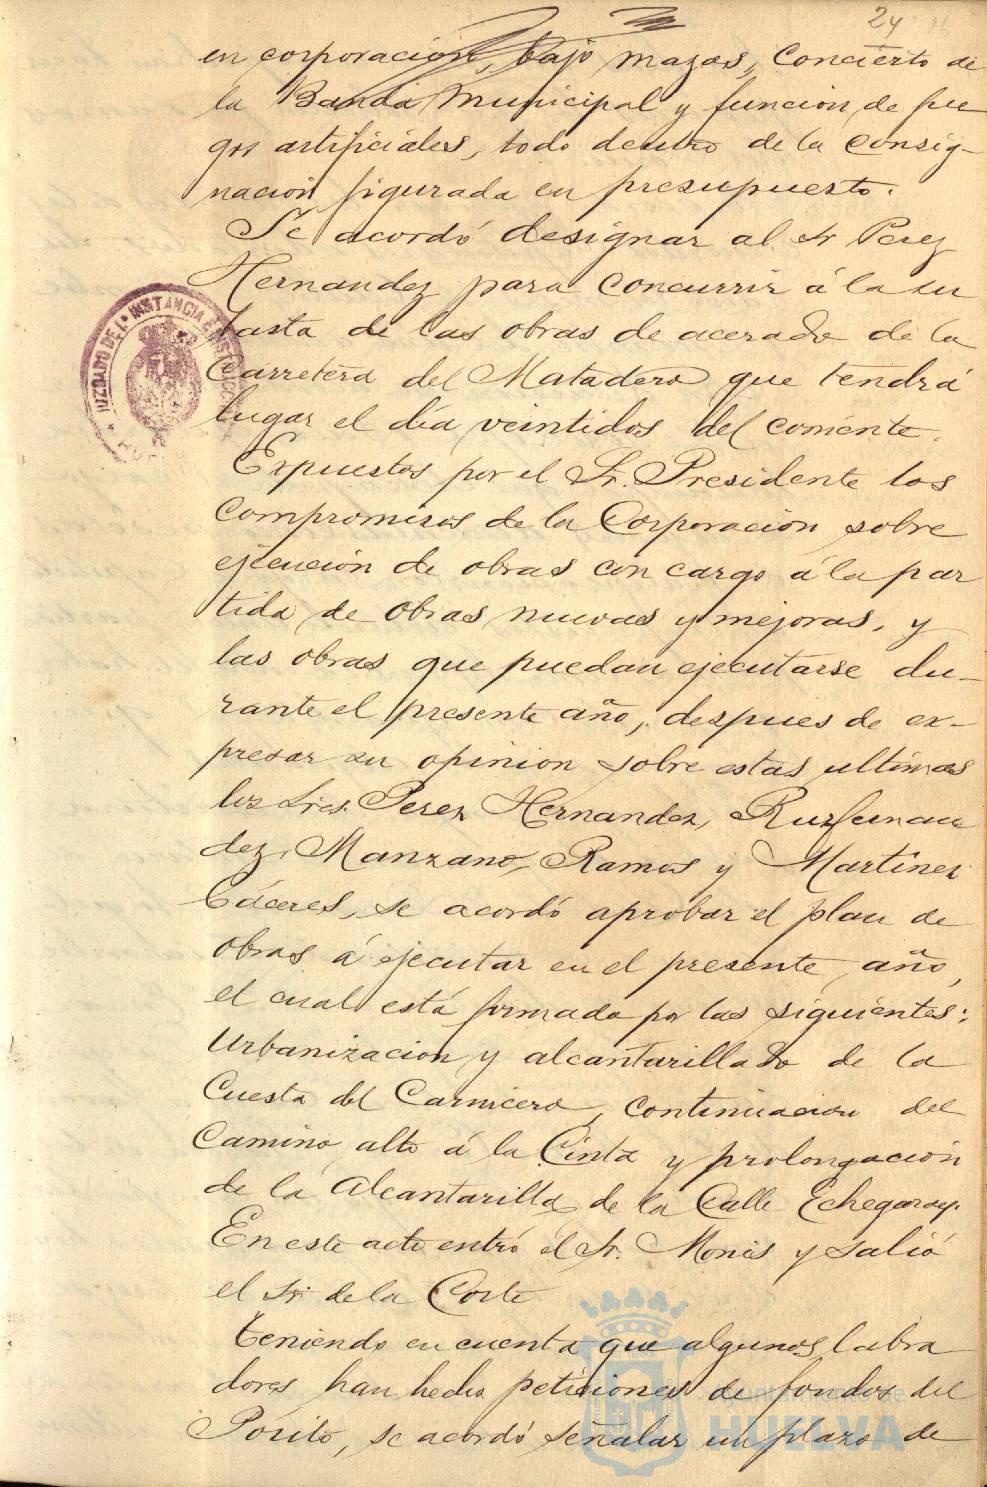 24
en corporación, bajo mazas, Concierto de
la Banda Municipal y función de fue
gos artificiales, todo dentro de la consig-
nación figurada en presupuesto.
Se acordó designar al Sr Perez
Hernandez para concurrir á la su
basta de las obras de acerado de la
Carretera del Matadero que tendrá
lugar el día veintidos del corriente.
Expuestos por el Sr. Presidente los
compromisos de la Corporación sobre
ejecución de obras con cargo á la par
tida de obras nuevas y mejoras, y
las obras que puedan ejecutarse du-
rante el presente año, despues de ex-
presar su opinion sobre estas ultimas
los Sres. Perez Hernandez, Ruifernan
dez, Manzano, Ramos y Martinez
Cáceres, se acordó aprobar el plan de
obras á ejecutar en el presente año,
el cual está formado por las siguientes:
Urbanizacion y alcantarillado de la
Cuesta del Carnicero, continuacion del
Camino alto á la Cinta y prolongación
de la Alcantarilla de la Calle Echegaray.
En este acto entró el Sr. Monis y salió
el Sr. de la Corte
Teniendo en cuenta que algunos labra
dores han hecho peticiones de fondos del
Pósito, se acordó señalar un plazo de
JUZGADO DE 1ª INSTANCIA E INSTRUCCION
Ayuntamiento de
HUELVA